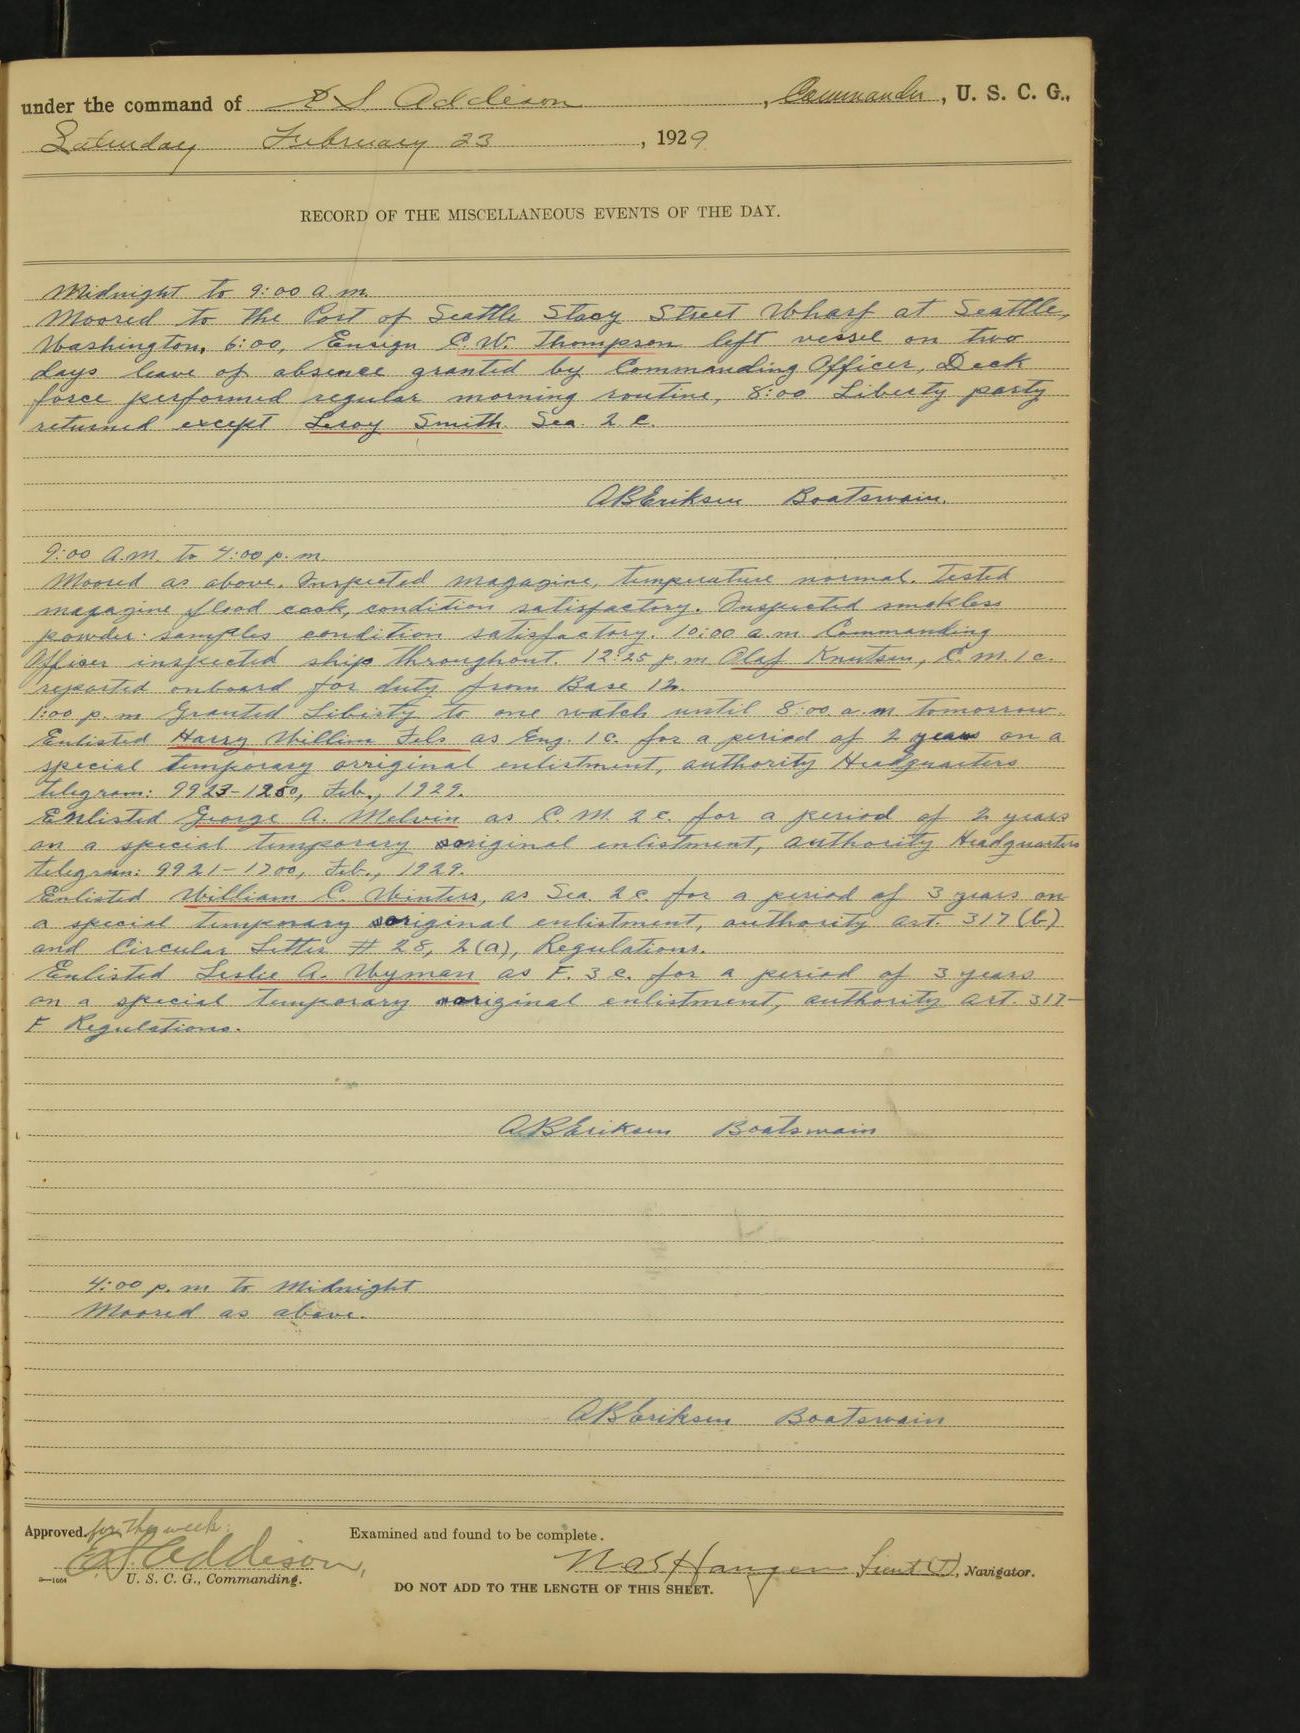 under the command of E S Addison, Commander, U. S. C. G.,
Saturday February 23, 1929
RECORD OF THE MISCELLANEOUS EVENTS OF THE DAY.
Midnight to 9:00 a m.
Moored to the Port of Seattle Stacy Street Wharf at Seattle,
Washington, 6:00, Ensign C. W. Thompson left vessel on two
days leave of absence granted by Commanding Officer, Deck
force performed regular morning routine, 8:00 Liberty party
returned except Leroy Smith Sea. 2 c.
A B Eriksen Boatswain.
9:00 a.m. to 4:00 p. m.
Moored as above. Inspected magazine, temperature normal. Tested
magazine flood cock, condition satisfactory. Inspected smokless
powder: samples condition satisfactory. 10:00 a.m. Commanding
Officer inspected ship throughout. 12:25 p m Olaf Knutsen, C. M. 1 c.
reported onboard for duty from Base 12.
1:00 p. m Granted Liberty to one watch until 8:00 a. m tomorrow.
Enlisted Harry Willim Fels as Eng. 1 c. for a period of 2 years on a
special temporary orriginal enlistment, authority Headquarters
telegram: 9923-1250, Feb., 1929.
Enlisted George A. Melvin as C. M. 2 c. for a period of 2 years
on a special temporary original enlistment, authority Headquarters
telegram: 9921-1700, Feb., 1929.
Enlisted William C. Winters, as Sea. 2 c. for a period of 3 years on
a special temporary original enlistment, authority art. 317 (b)
and Circular Letter # 28, 2(a), Regulations.
Enlisted Leslie A. Wyman as F. 3 c. for a period of 3 years
on a special temporary original enlistment, authority art. 317-
F Regulations.
A B Eriksen Boatswain
4:00 p. m to Midnight
Moored as above.
A B Eriksen Boatswain
Approved. for the week:
Examined and found to be complete.
E S Addison,
Lieut (T), Navigator.
U. S. C. G., Commanding.
DO NOT ADD TO THE LENGTH OF THIS SHEET.